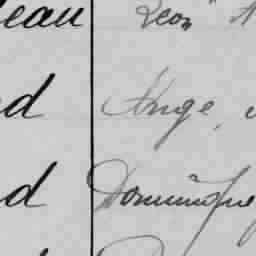 eau Léon
d Ange,
d Dominique